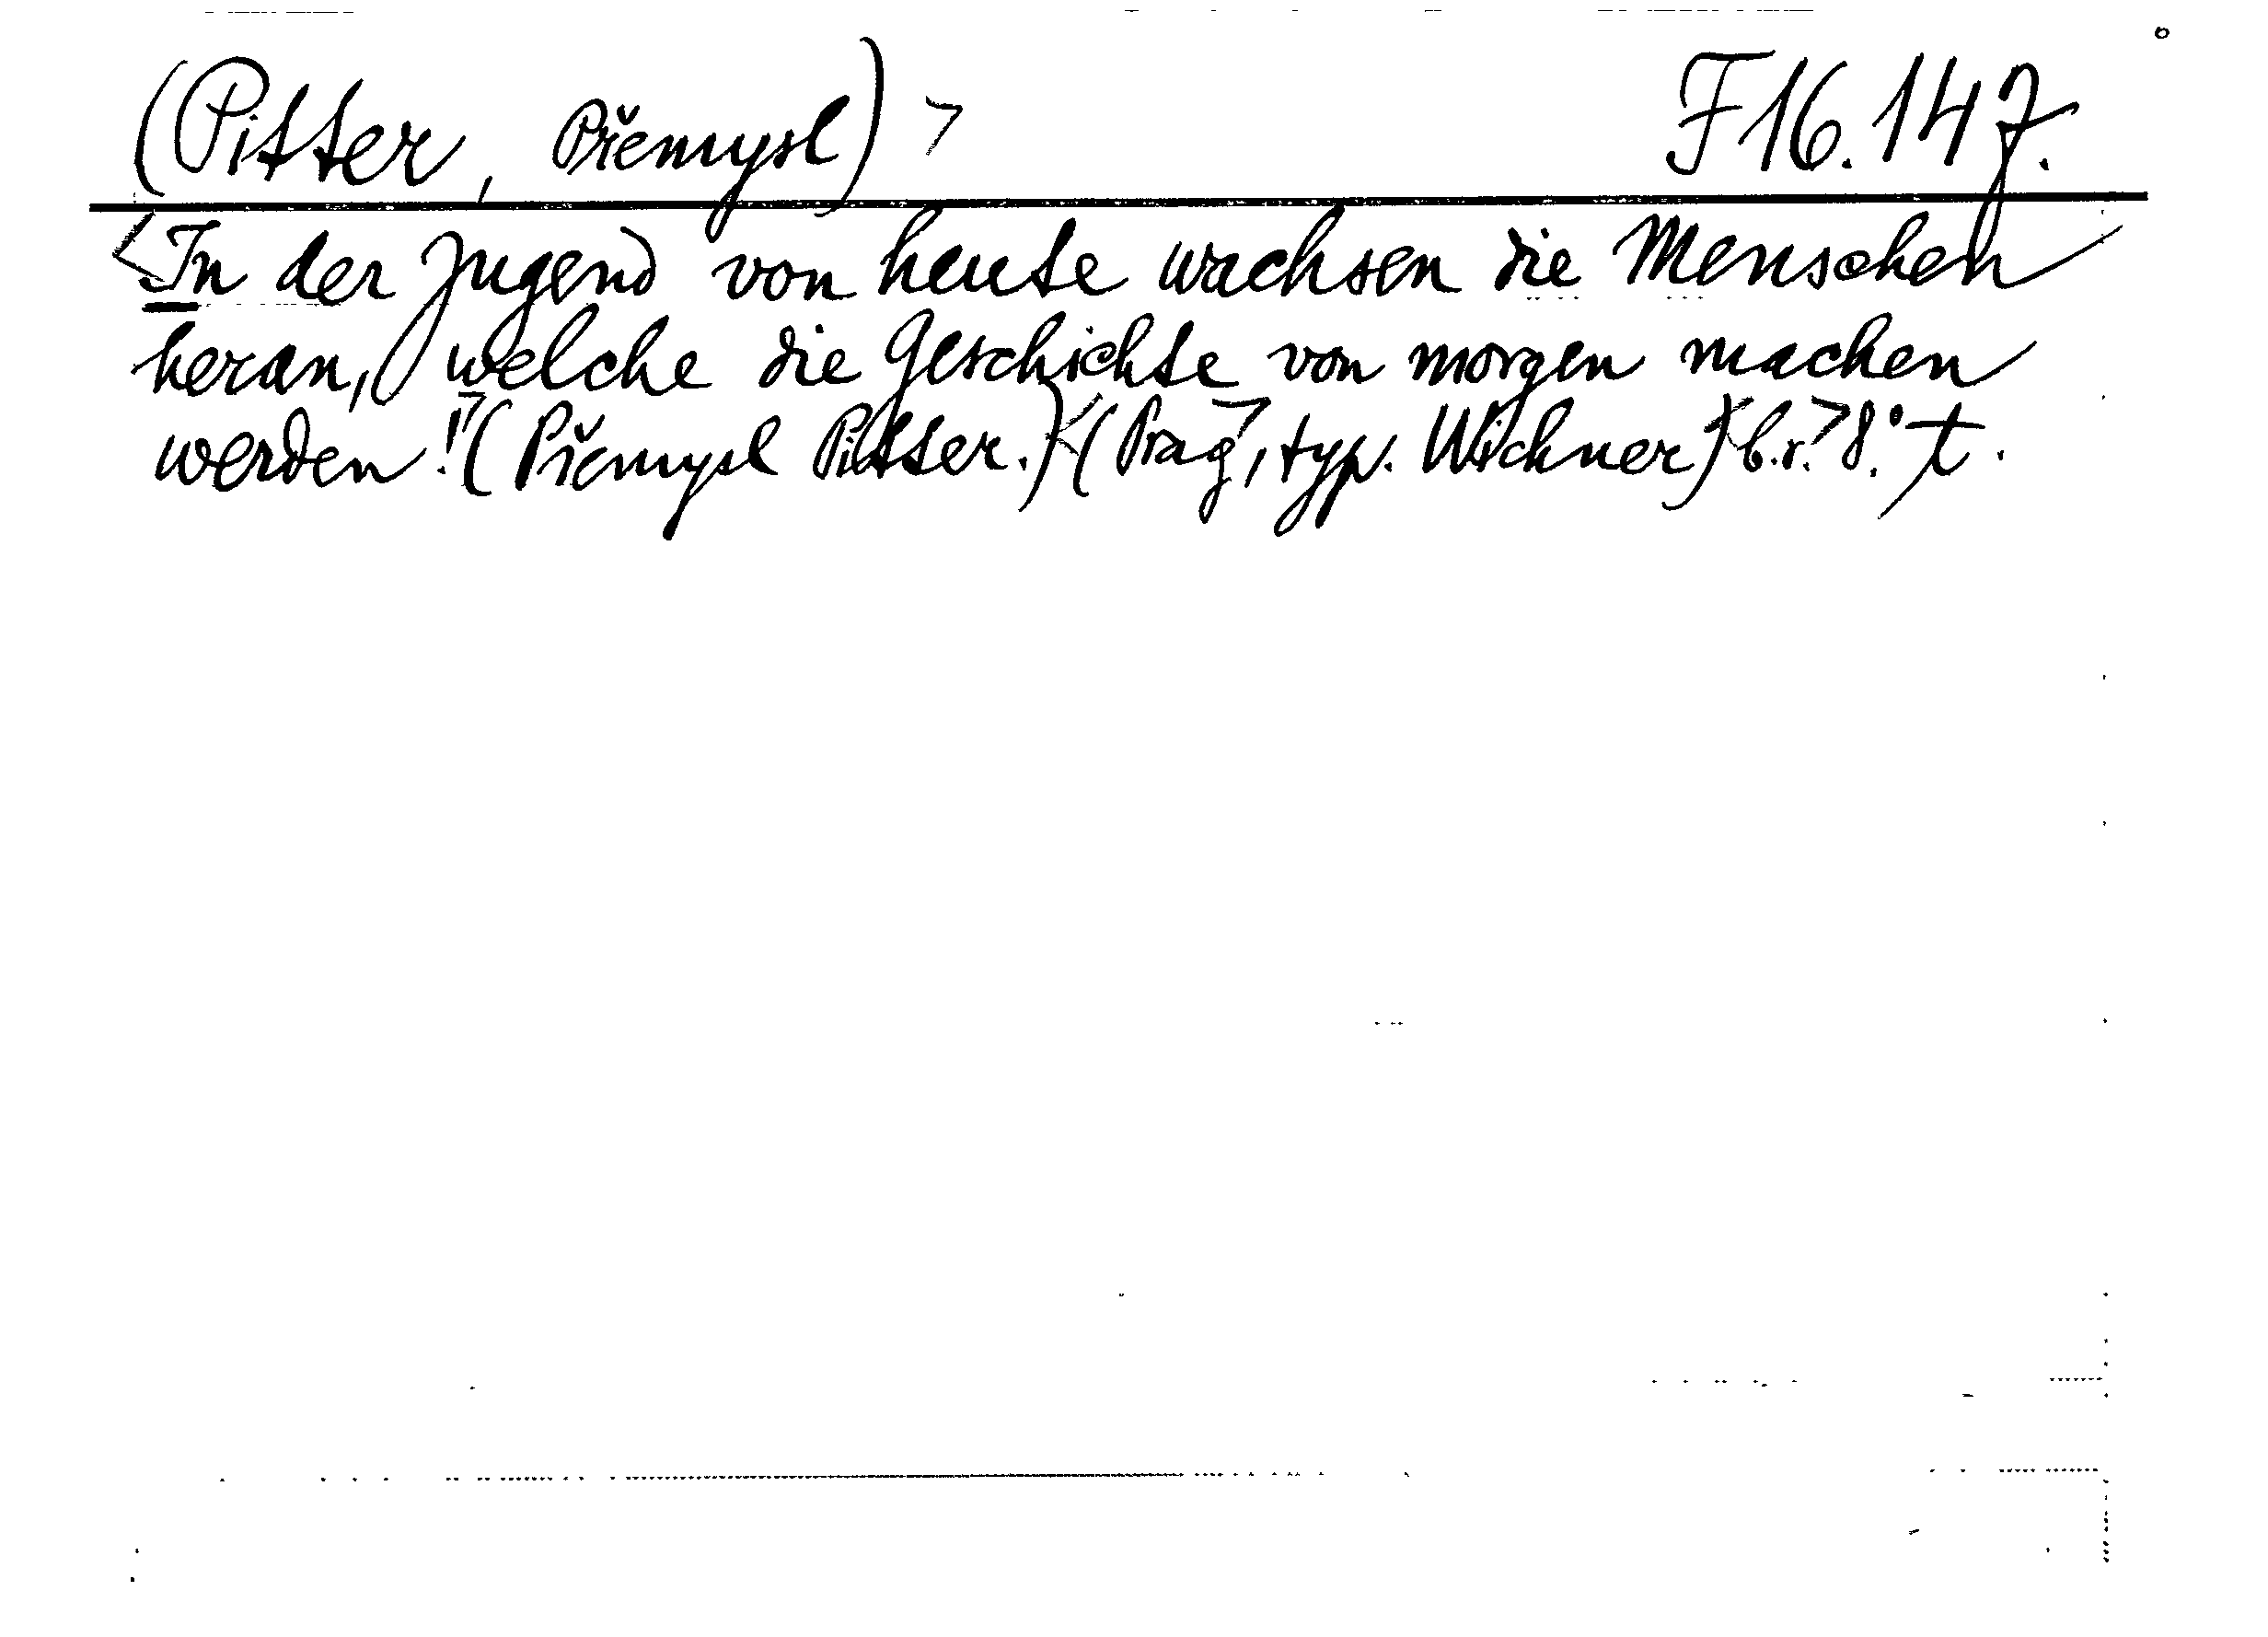 (Pitter, Přemysl) > F 16.147.
<In der Jugend von heute wachsen die Menschen
heran, welche die Geschichte von morgen machen
werden!> (Přemysl Pitter.) <(Prag>, typ. Wichner) <b.r.> 8.° t.